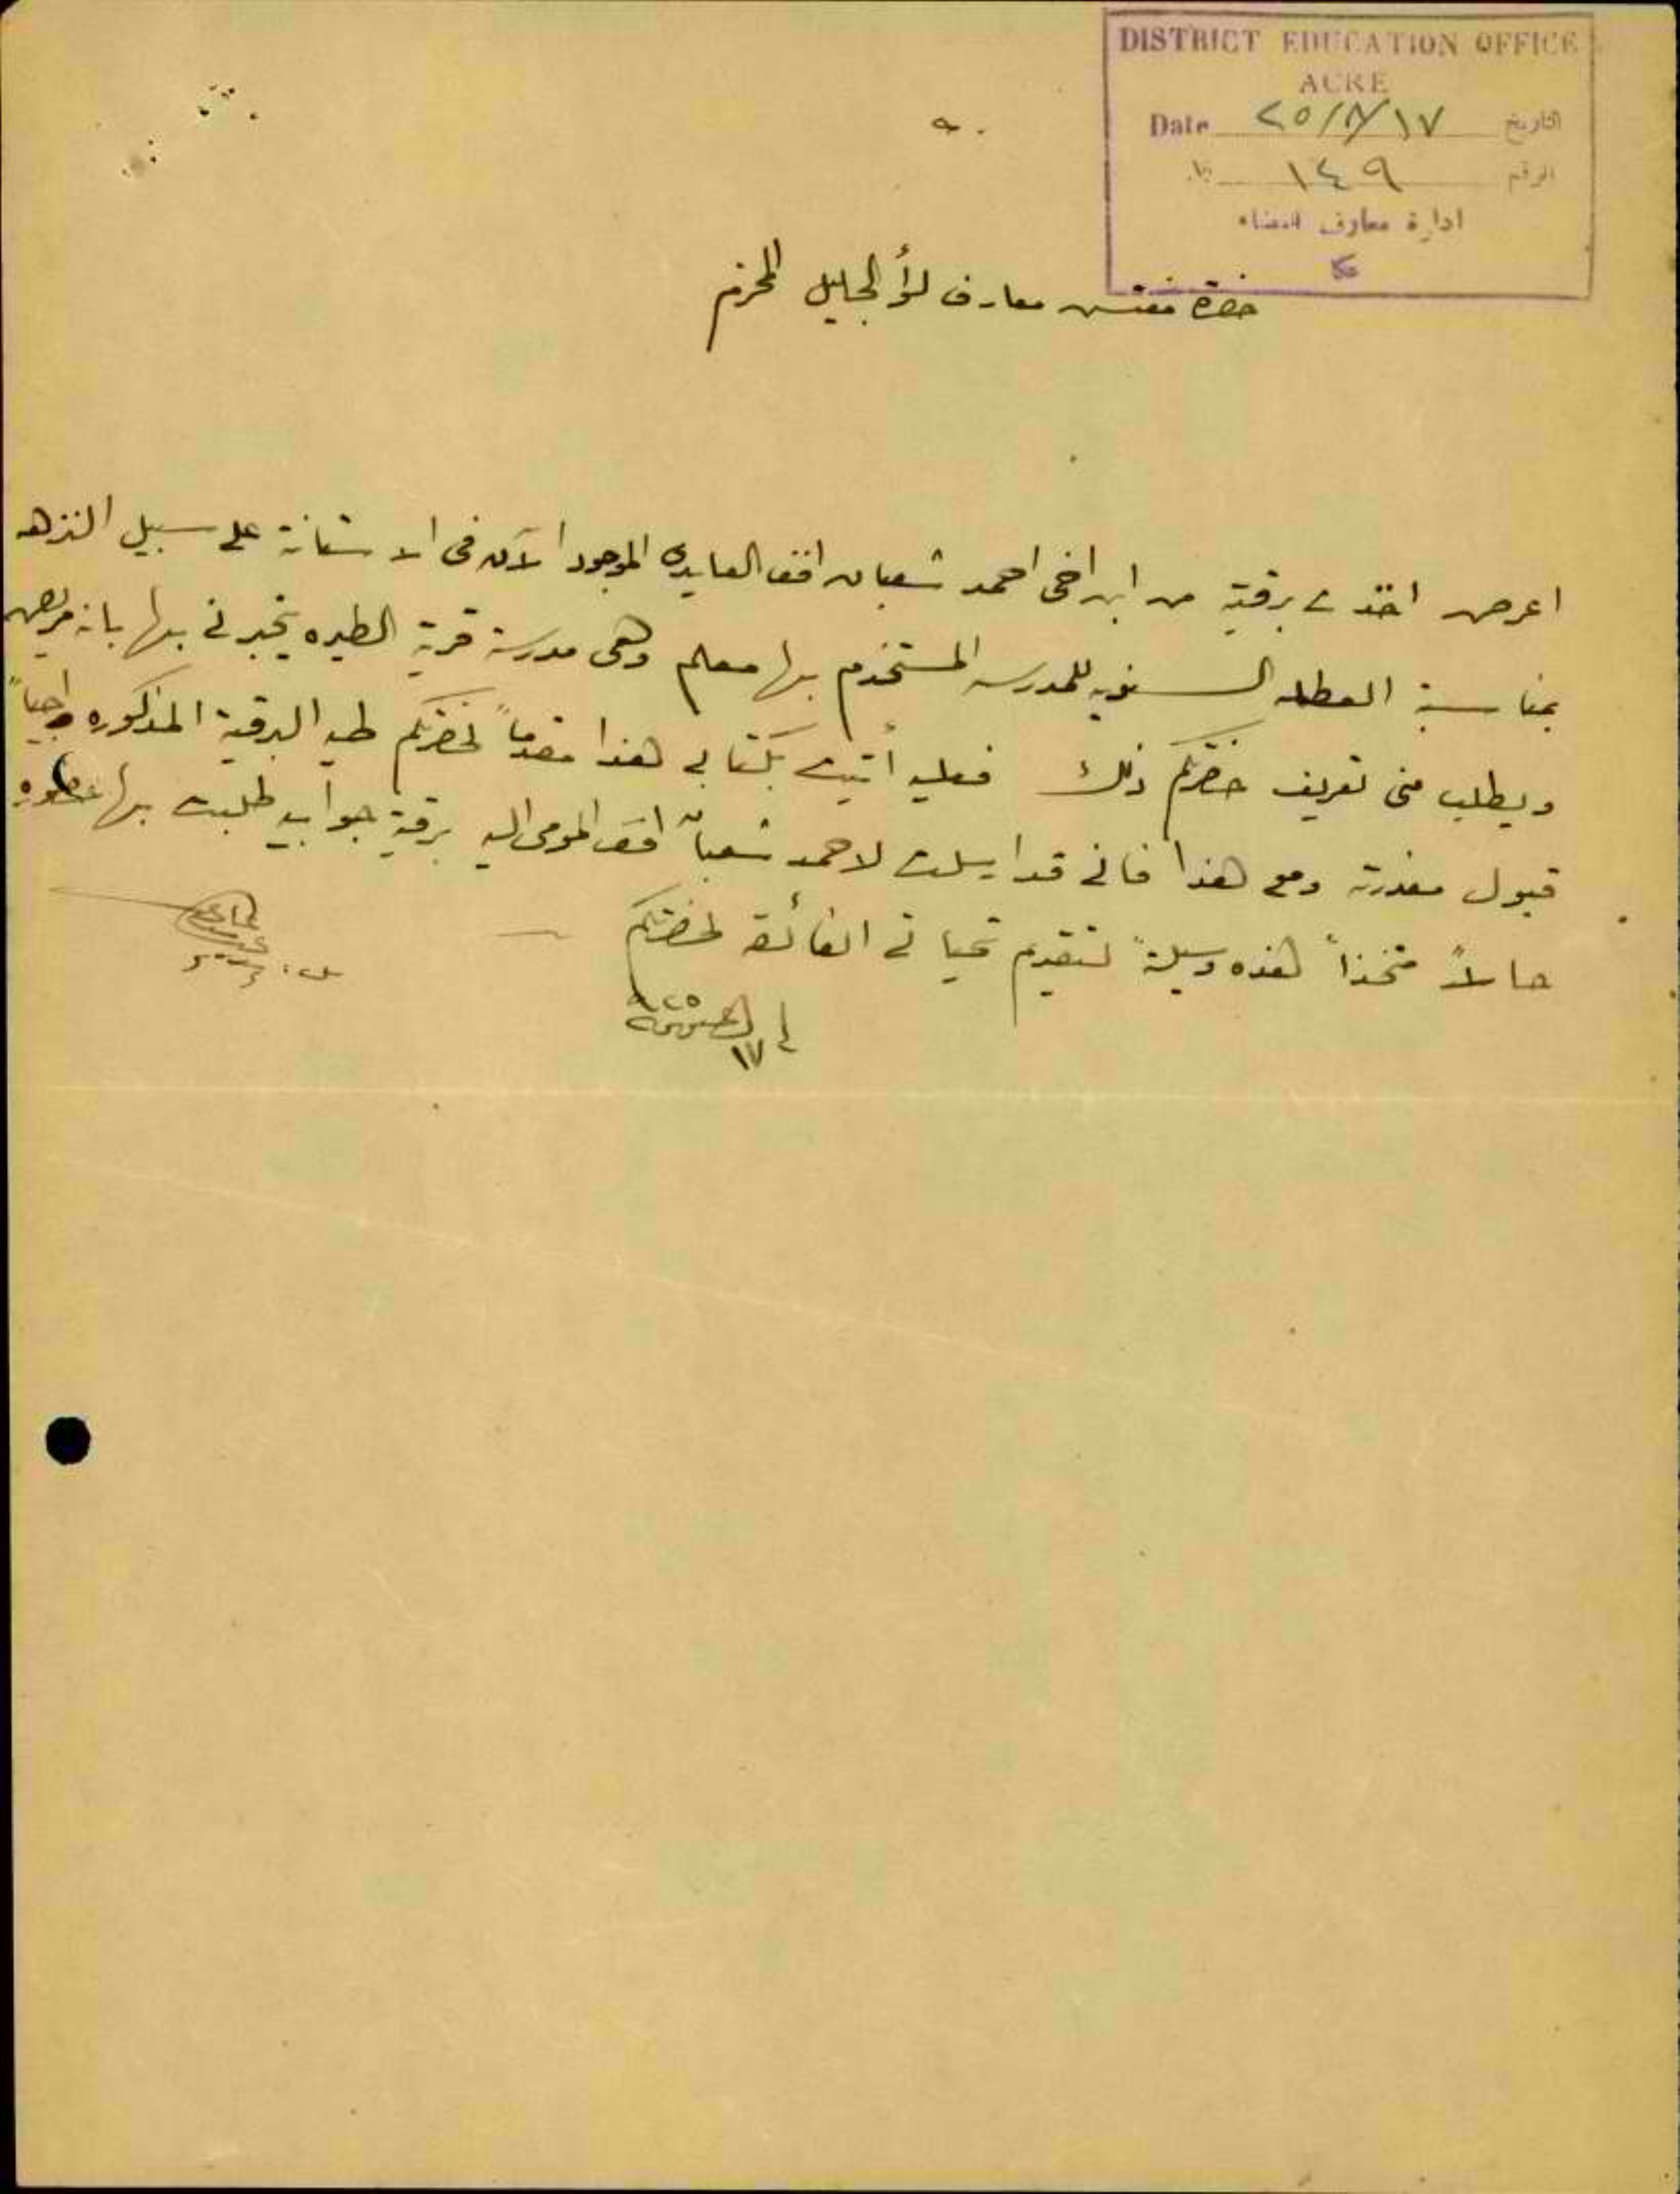 DISTRICT EDUCATION OFFICE
ACRE
Date ٢٥/٨/١٧ التاريخ
No. ١٤٩ الرقم
ادارة معارف القضاء
عكا
حضرة مفتش معارف لوأ الجليل المحترم
اعرض اخذت برقية من ابن اخي احمد شعبان افندي العايدي الموجود الآن في الاستانة على سبيل النزهه
بمناسبة العطله السنويه للمدرسه المستخدم بها معلم وهي مدرسة قرية الطيره يخبرني بها بانه مريض
ويطلب مني تعريف حضرتكم ذلك فعليه أتيت بكتابي هذا مقدماً لحضرتكم طيه البرقية المذكوره راجياً
قبول معذرته ومع هذا فاني قد ارسلت لاحمد شعبان افندي المومى اليه برقية جوابيه طلبت بها حضوره
حالاً متخذاً هذه وسيلةً لتقديم تحياتي الفائقة لحضرتكم
١٧ ٩٢٥